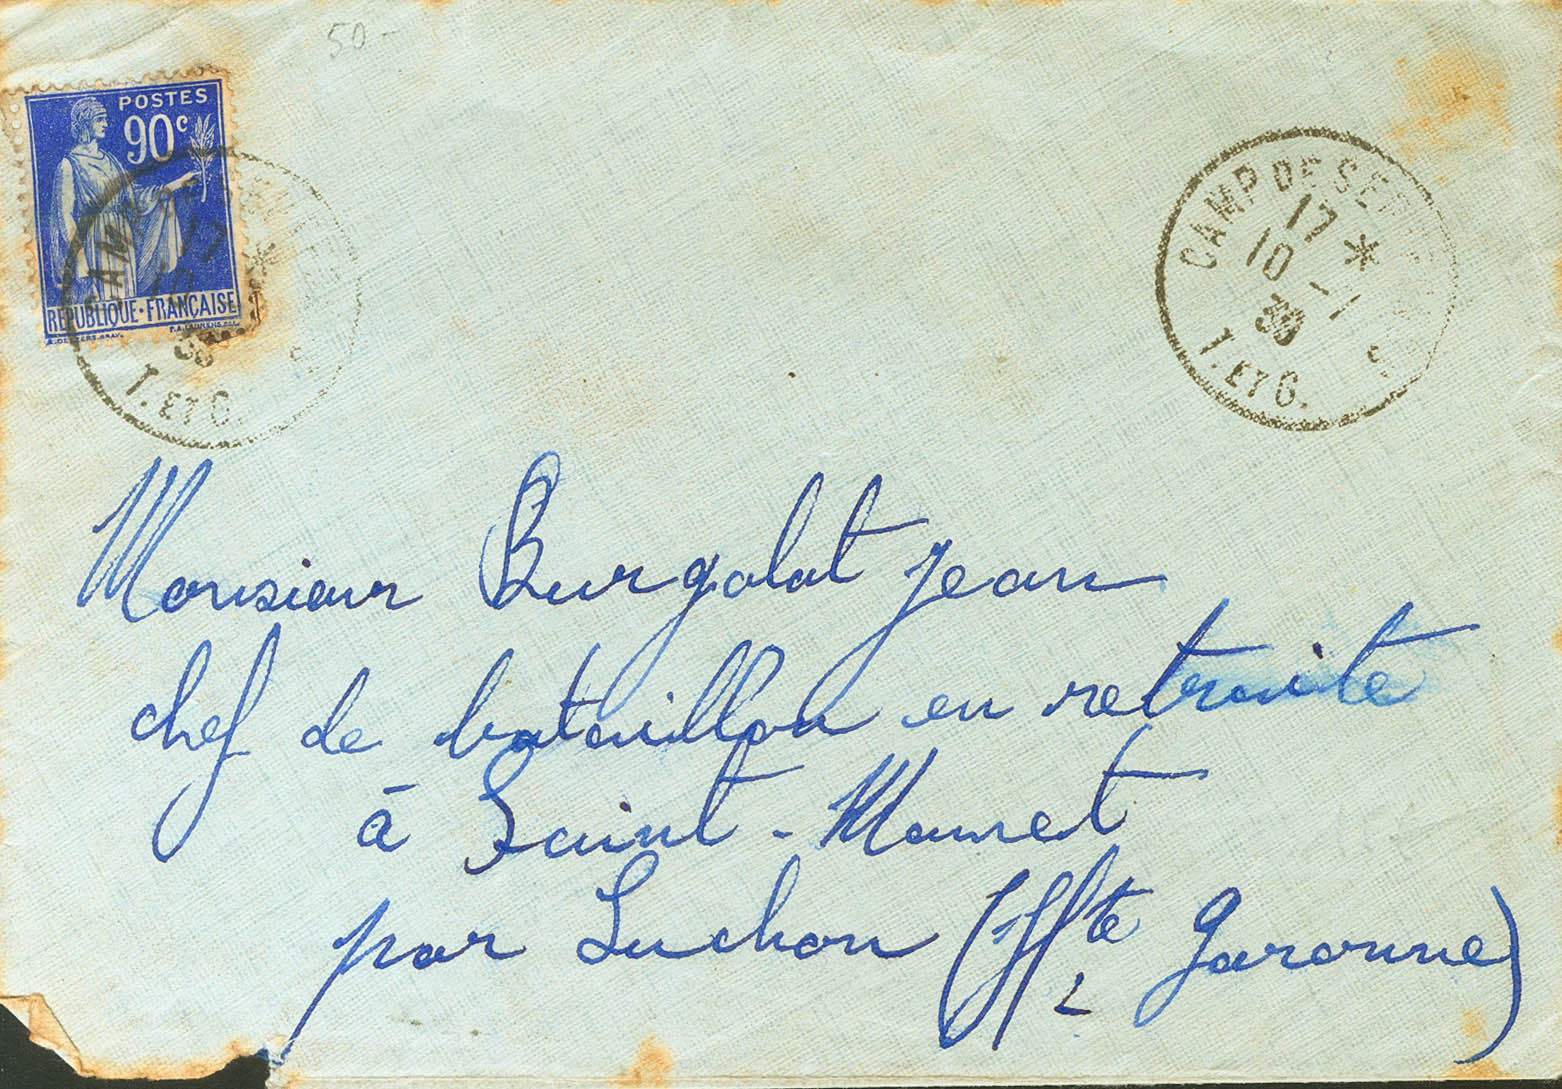 50-
POSTES
90c
REPUBLIQUE · FRANÇAISE
CAMP DE
17
10
T. ET G.
CAMP DE
17 *
10 - 1
39
T. ET G.
Monsieur Burgalat Jean
chef de bataillon en retraite
à Saint - Mamet
par Luchon (Hte Garonne)